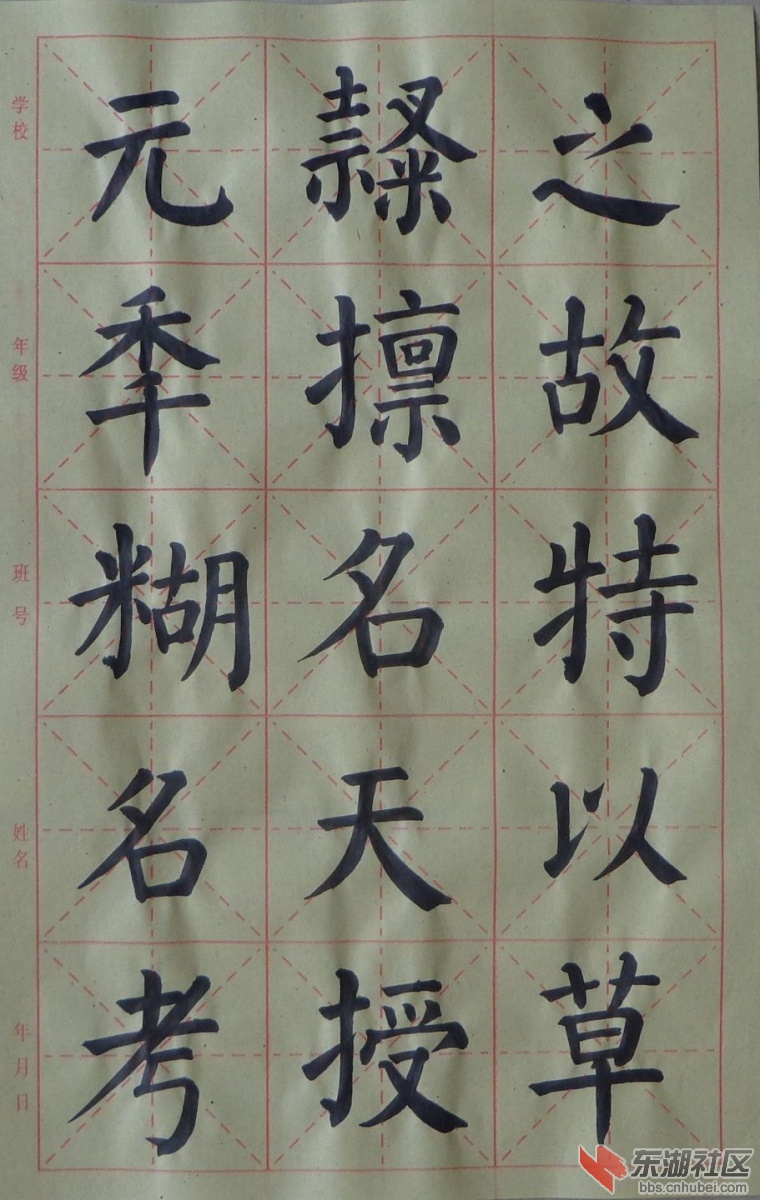 之故特以草
隸擅名天授
元秊糊名考
学校
年级
班号
姓名
年月日
东湖社区
bbs.cnhubei.com